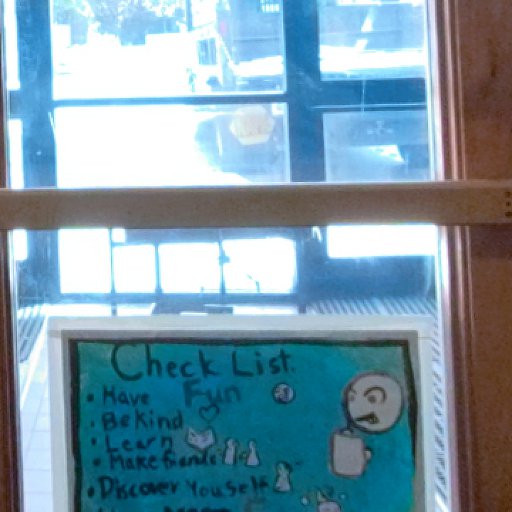 Check List.
• Have Fun
• Be Kind
• Learn
• Make friends
• Discover Youself